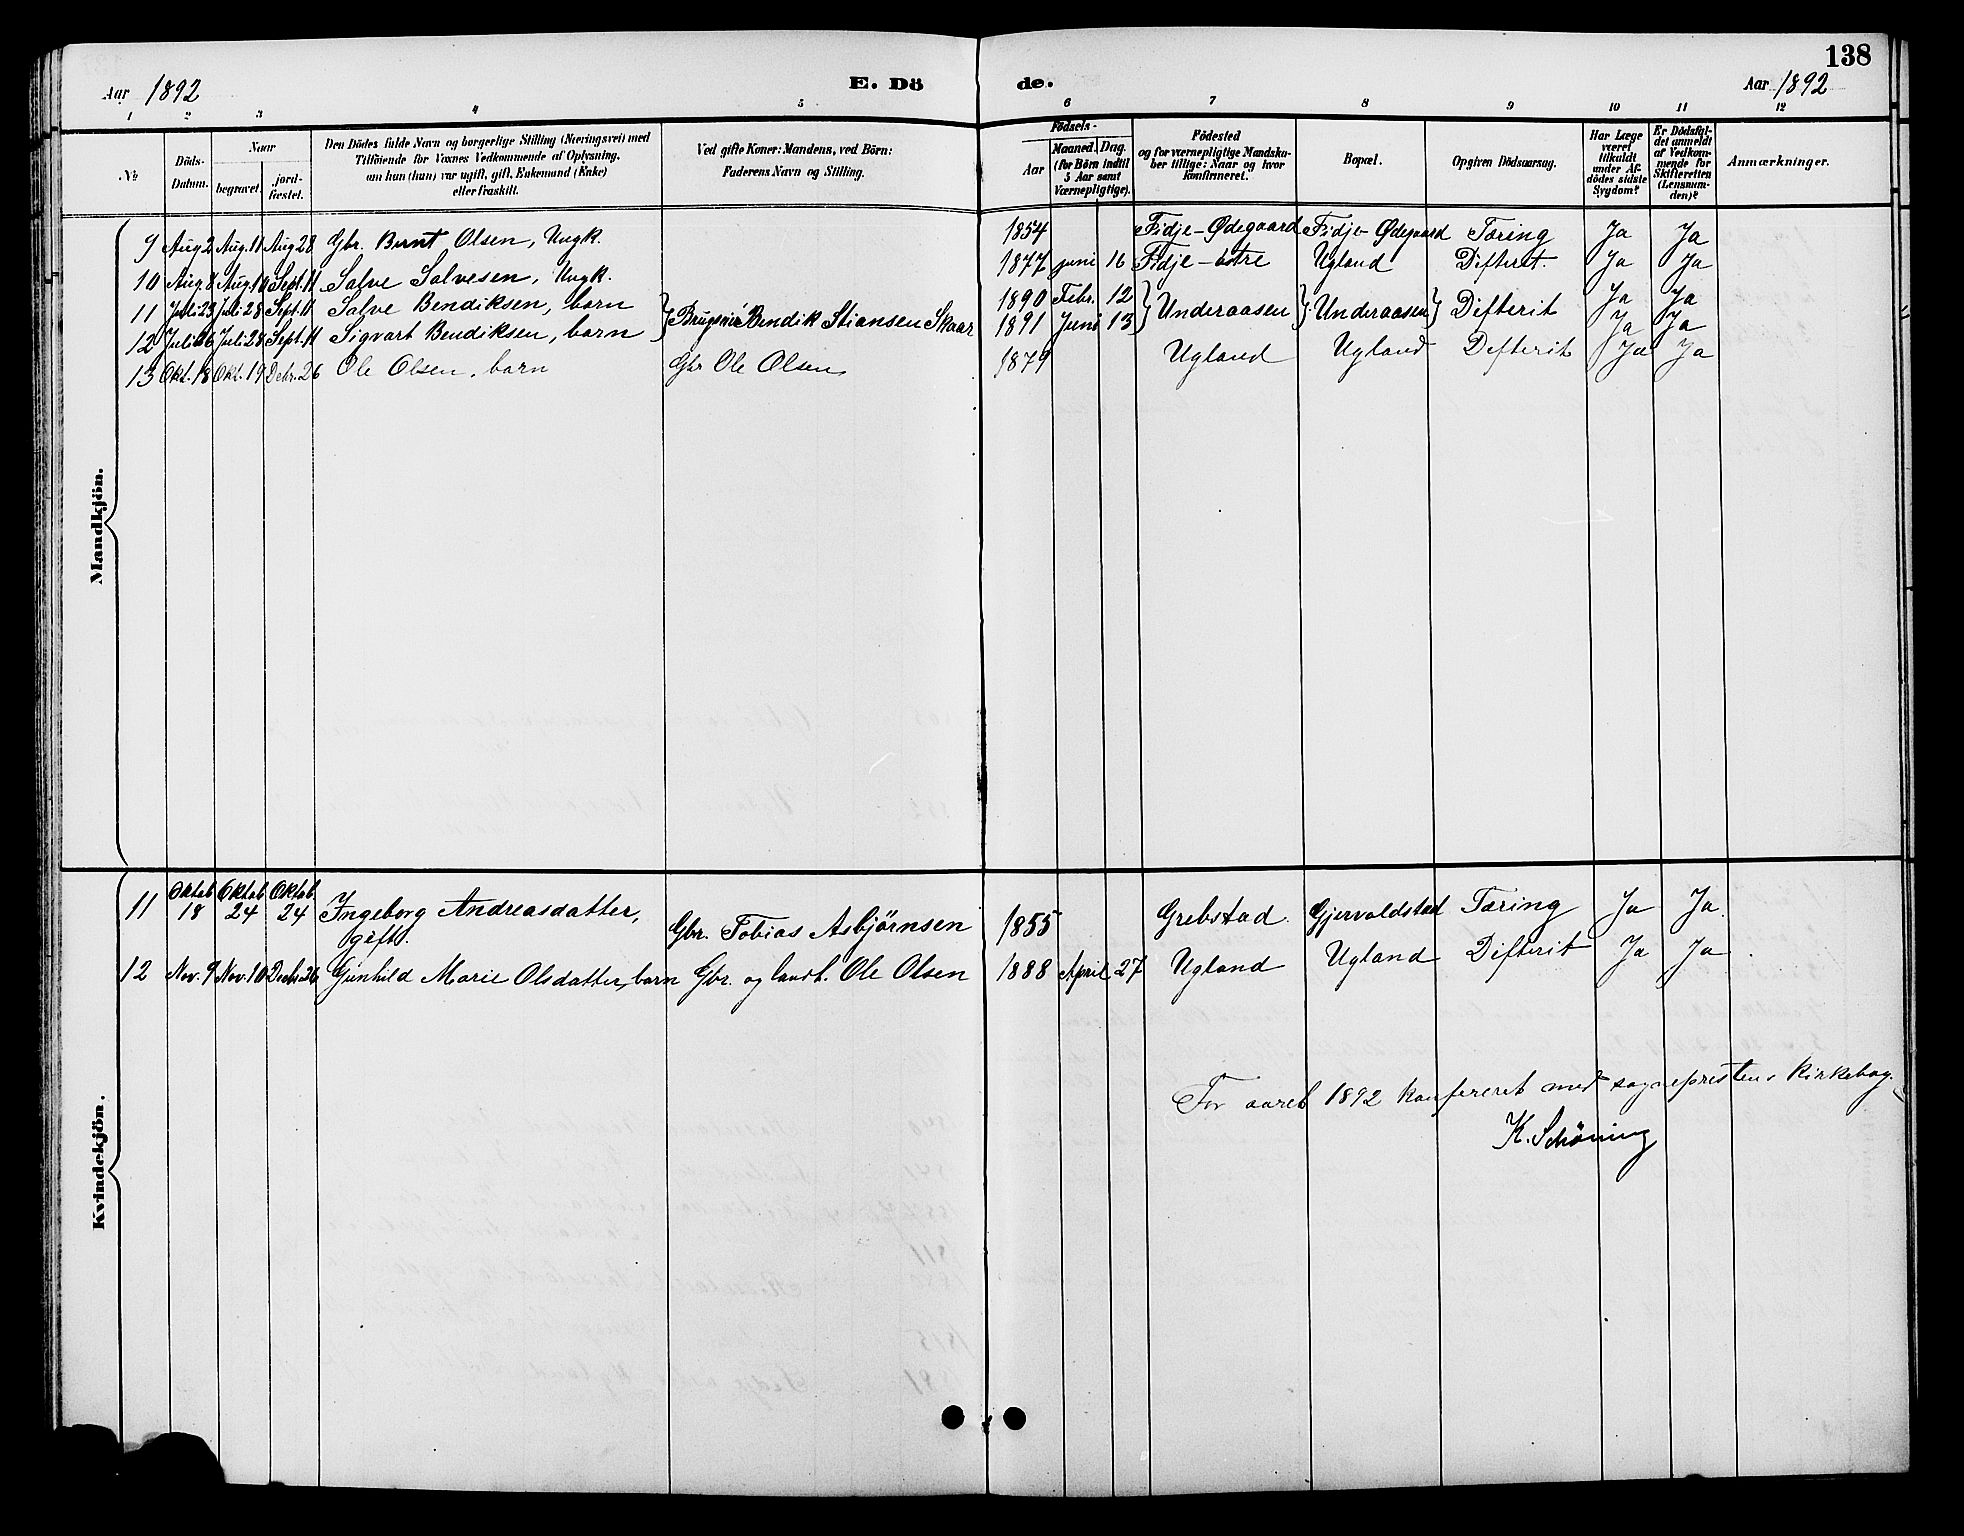 138
Aar 1892 E. Dö de. Aar 1892
1 2 3 4 5 6 7 8 9 10 11 12
№
Döds-
Datum.
Naar
begravet.
jord-
fæstet.
Den Dödes fulde Navn og borgerlige Stilling (Næringsvei) med
Tilföiende for Voxnes Vedkommende af Oplysning,
om han (hun) var ugift, gift, Enkemand (Enke)
eller fraskilt.
Ved gifte Koner: Mandens, ved Börn:
Faderens Navn og Stilling.
Födsels-
Aar
Maaned. Dag.
(for Börn indtil
5 Aar samt
Værnepligtige).
Födested
og for værnepligtige Mandska-
ber tillige: Naar og hvor
konfirmeret.
Bopæl.
Opgiven Dödsaarsag.
Har Læge
været
tilkaldt
under Af-
dödes sidste
Sygdom?
Er Dödsfal-
det anmeldt
af Vedkom-
mende for
Skifteretten
(Lensman-
den)?
Anmærkninger.
Mandkjön.
9 Aug. 2 Aug. 11 Aug 28 Gbr. Olsen, Ungk. 1854 Fidje-Ødegaard Fidje-Ødegaard Tæring Ja Ja
10 Aug. 8 Aug. 10 Sept. 11 Salve Salvesen, Ungk. 1877 juni 16 Fidje- Ugland Difterit. Ja Ja
11 Juli 23 Juli 28 Sept. 11 Salve Bendiksen, barn } Bendik Stiansen Skaar 1890 Febr. 12 } Underaasen } Underaasen } Difterit Ja Ja
12 Juli 26 Juli 28 Sept. 11 Sigvart Bendiksen, barn 1891 Juni 13 Ja Ja
13 Okt. 18 Okt. 19 Debr. 26 Ole Olsen, barn Gbr Ole Olsen 1879 Ugland Ugland Difterit Ja Ja
Kvindekjön.
11 Oktob 18 Oktob 24 Oktob 24 Ingeborg Andreasdatter,
gift. Gbr. Tobias Asbjørnsen 1855 Grebstad Gjervoldstad Tæring Ja Ja
12 Nov. 9 Nov. 10 Decbr. 26 Gunhild Marie Olsdatter, barn Gbr. og landh. Ole Olsen 1888 April 27 Ugland Ugland Difterit Ja Ja
For aaret 1892 konfereret med sogneprestens kirkebog.
K. Schöning